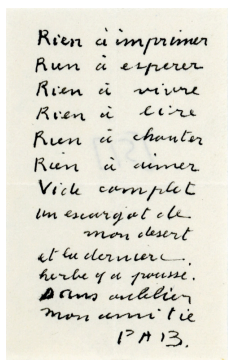 Rien à imprimer
Rien à espérer
Rien à vivre
Rien à lire
Rien à chanter
Rien à aimer
Vide complet
un escargot de
mon desert
et la dernière
herbe y a poussé.
Sans oublier
mon amitié
PAB.